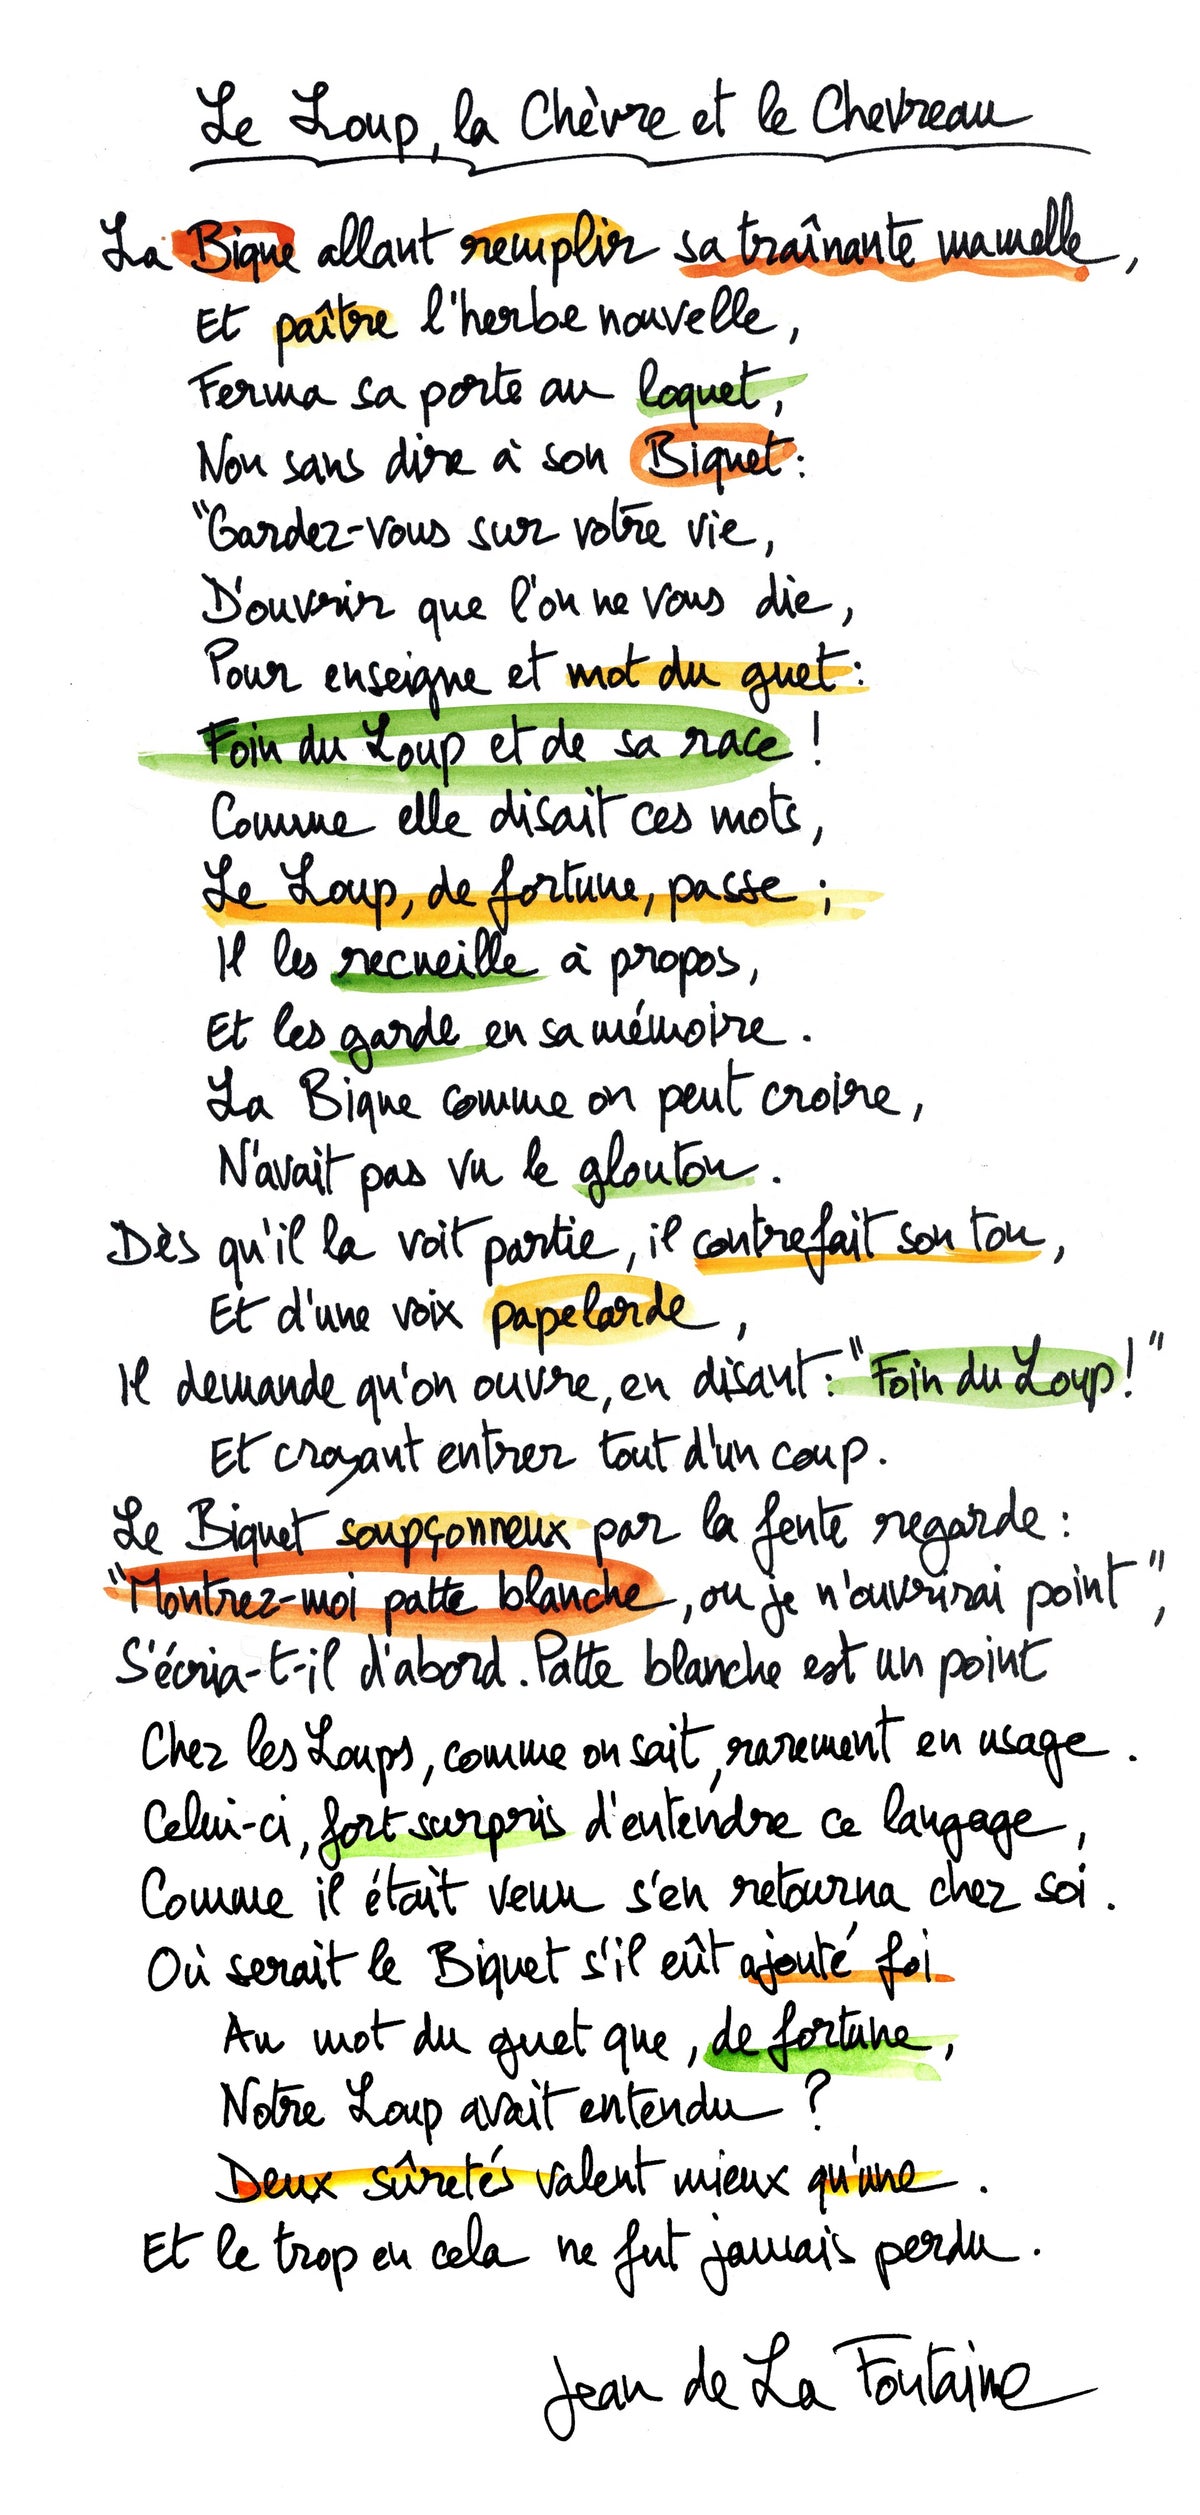 Le Loup, la Chèvre et le Chevreau
La Bique allant remplir sa traînante mamelle,
Et paître l'herbe nouvelle,
Ferma sa porte au loquet,
Non sans dire à son Biquet :
"Gardez-vous sur votre vie,
D'ouvrir que l'on ne vous die,
Pour enseigne et mot du guet :
Foin du Loup et de sa race !
Comme elle disait ces mots,
Le Loup, de fortune, passe ;
Il les recueille à propos,
Et les garde en sa mémoire.
La Bique comme on peut croire,
N'avait pas vu le glouton.
Dès qu'il la voit partie, il contrefait son ton,
Et d'une voix papelarde,
Il demande qu'on ouvre, en disant : "Foin du Loup !"
Et croyant entrer tout d'un coup.
Le Biquet soupçonneux par la fente regarde :
"Montrez-moi patte blanche, ou je n'ouvrirai point",
S'écria-t-il d'abord. Patte blanche est un point
Chez les Loups, comme on sait, rarement en usage.
Celui-ci, fort surpris d'entendre ce langage,
Comme il était venu s'en retourna chez soi.
Où serait le Biquet s'il eût ajouté foi
Au mot du guet que, de fortune,
Notre Loup avait entendu ?
Deux sûretés valent mieux qu'une.
Et le trop en cela ne fut jamais perdu.
Jean de La Fontaine